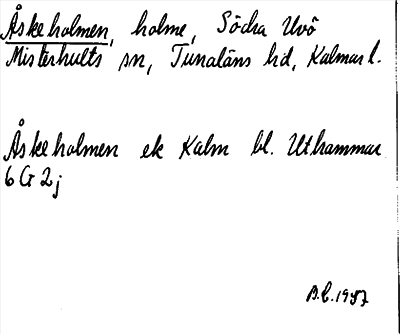 Åskeholmen, holme, Södra Uvö
Misterhults sn, Tunaläns hd, Kalmar l.
Åskeholmen ek Kalm bl. Uthammar
6 G 2 j
B.L. 1957